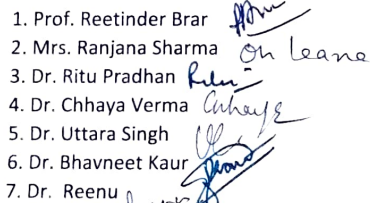 1. Prof. Reetinder Brar
2. Mrs. Ranjana Sharma On leane
3. Dr. Ritu Pradhan Ritu
4. Dr. Chhaya Verma Chhaya
5. Dr. Uttara Singh
6. Dr. Bhavneet Kaur
7. Dr. Reenu